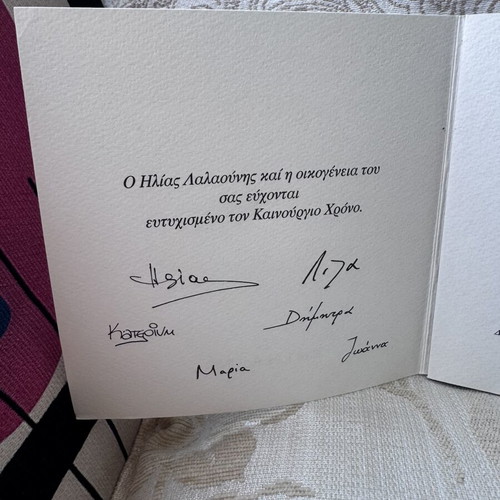 Ο Ηλίας Λαλαούνης καί η οικογένεια του
σας εύχονται
ευτυχισμένο τον Καινούργιο Χρόνο.
Ηλίας
Λιλα
Δήμητρα
Κατερίνα
Ιωάννα
Μαρία